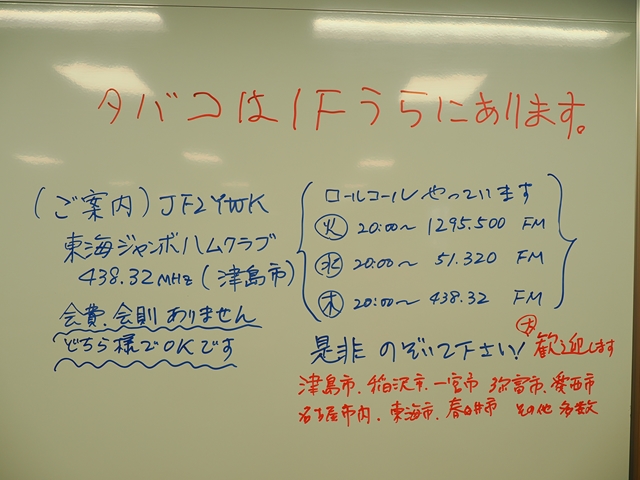 タバコは1Fうらにあります。
(ご案内) JF2YWK
東海ジャンボハムクラブ
438.32MHz (津島市)
会費、会則ありません
どちら様でOKです
ロールコールやっています
火 20:00〜 1295.500 FM
水 20:00〜 51.320 FM
木 20:00〜 438.32 FM
是非 のぞいて下さい! 大歓迎します
津島市、稲沢市、一宮市 弥富市、愛西市
名古屋市内、東海市、春日井市 その他多数